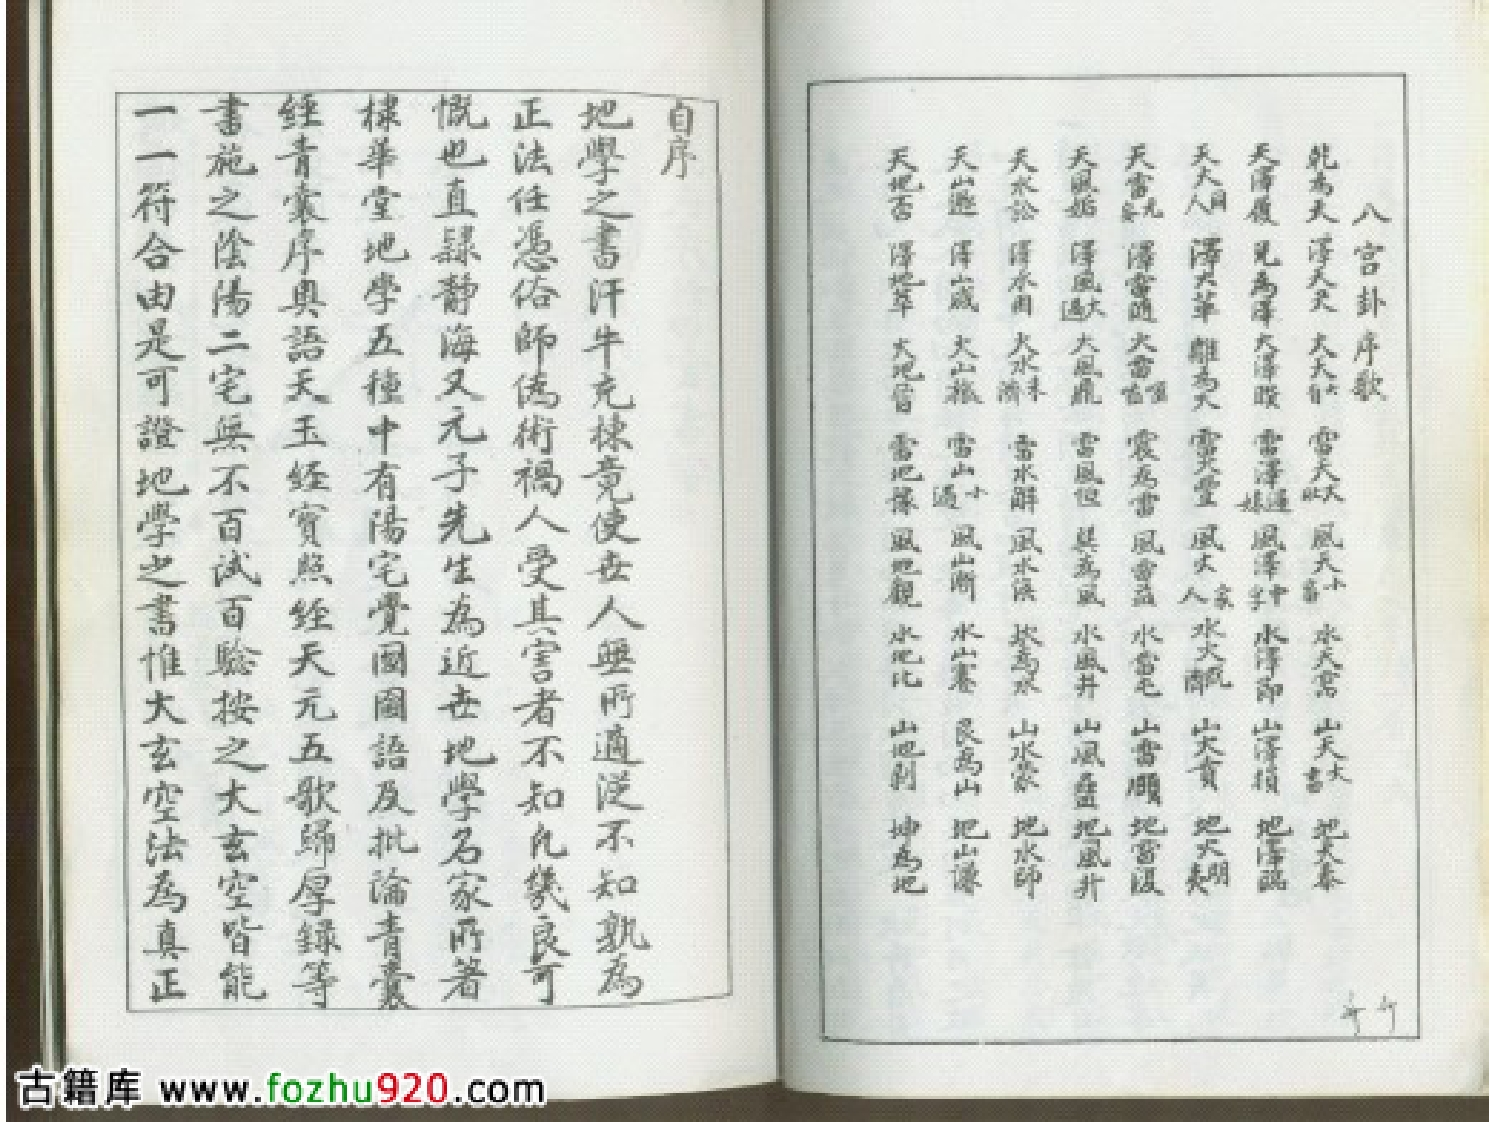 八宮卦序歌
乾為天 澤天夬 火天大有 雷天大壯 風天小畜 水天需 山天大畜 地天泰
天澤履 兌為澤 火澤睽 雷澤歸妹 風澤中孚 水澤節 山澤損 地澤臨
天火同人 澤火革 離為火 雷火豐 風火家人 水火既濟 山火賁 地火明夷
天雷无妄 澤雷隨 火雷噬嗑 震為雷 風雷益 水雷屯 山雷頤 地雷復
天風姤 澤風大過 火風鼎 雷風恒 巽為風 水風井 山風蠱 地風升
天水訟 澤水困 火水未濟 雷水解 風水渙 坎為水 山水蒙 地水師
天山遯 澤山咸 火山旅 雷山小過 風山漸 水山蹇 艮為山 地山謙
天地否 澤地萃 火地晉 雷地豫 風地觀 水地比 山地剝 坤為地
自序
地學之書汗牛充棟竟使世人無所適從不知孰為
正法任憑俗師偽術禍人受其害者不知凡幾良可
慨也直隸靜海又元子先生為近世地學名家所著
棣華堂地學五種中有陽宅覺國國語及批論青囊
經青囊序奥語天玉經寶照經天元五歌歸厚錄等
書施之陰陽二宅無不百試百驗按之大玄空皆能
一一符合由是可證地學之書惟大玄空法為真正
古籍库 www.fozhu920.com